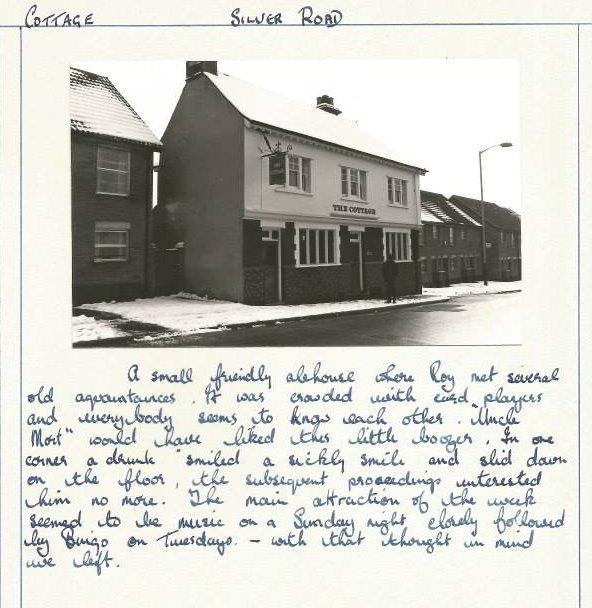 COTTAGE SILVER ROAD
THE COTTAGE
A small friendly alehouse where Roy met several
old aquaintances. It was crowded with card players
and everybody seems to know each other. "Uncle
Mort" would have liked this little boozer. In one
corner a drunk "smiled a sickly smile and slid down
on the floor, the subsequent proceedings interested
him no more. The main attraction of the week
seemed to be music on a Sunday night, closely followed
by Bingo on Tuesdays. - with that thought in mind
we left.